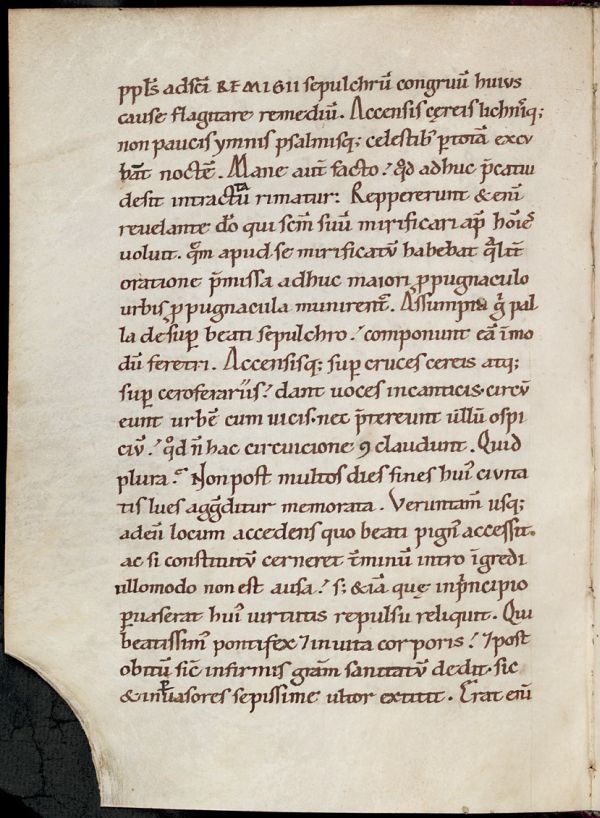 ppl̄s ad sc̄i REMIGII sepulchrū congruū huius
cause flagitare remediū. Accensis cereis lichnīq;
non paucis ymnis psalmisq; celestib; p totā excu
bant noctē. Mane aut̄ facto? qd̄ adhuc p̄catui
desit intractatū rimatur: Reppererunt & eni̅
reuelante dō qui sc̄m suū mirificari ap̄ hoīes
uoluit. qm̄ apud se mirificatū habebat q̄lit̄
oratione p̄missa adhuc maiori ꝓpugnaculo
urbis ꝓpugnacula munirent̄. Assumpta g̊ pal
la desup̱ beati sepulchro? componunt eā ī mo
dū feretri. Accensisq; sup̱ cruces cereis atq;
sup̱ ceroferariis? dant uoces in canticis. circū
eunt urbē cum uicis. nec p̄tereunt ullū ospi
ciū? qd̄ n̄ hac circuicione ꝯcludunt. Quid
plura? Non post multos dies fines hui᾽ ciuita
tis lues aggreditur memorata. Veruntam̄ usq;
ad eū locum accedens quo beati pign᾽ accessit.
ac si constitutū cerneret t̄minū intro īgredi
ullomodo non est ausa? s; & iā quę in principio
p̱uaserat hui᾽ uirtutis repulsu reliquit. Qui
beatissim᾽ pontifex ⁊ in uita corporis? ⁊ post
obitū sic̄ infirmis gr̄am sanitatū dedit. sic
& in p̱uasores sepissime ultor extitit. Erat eni̅